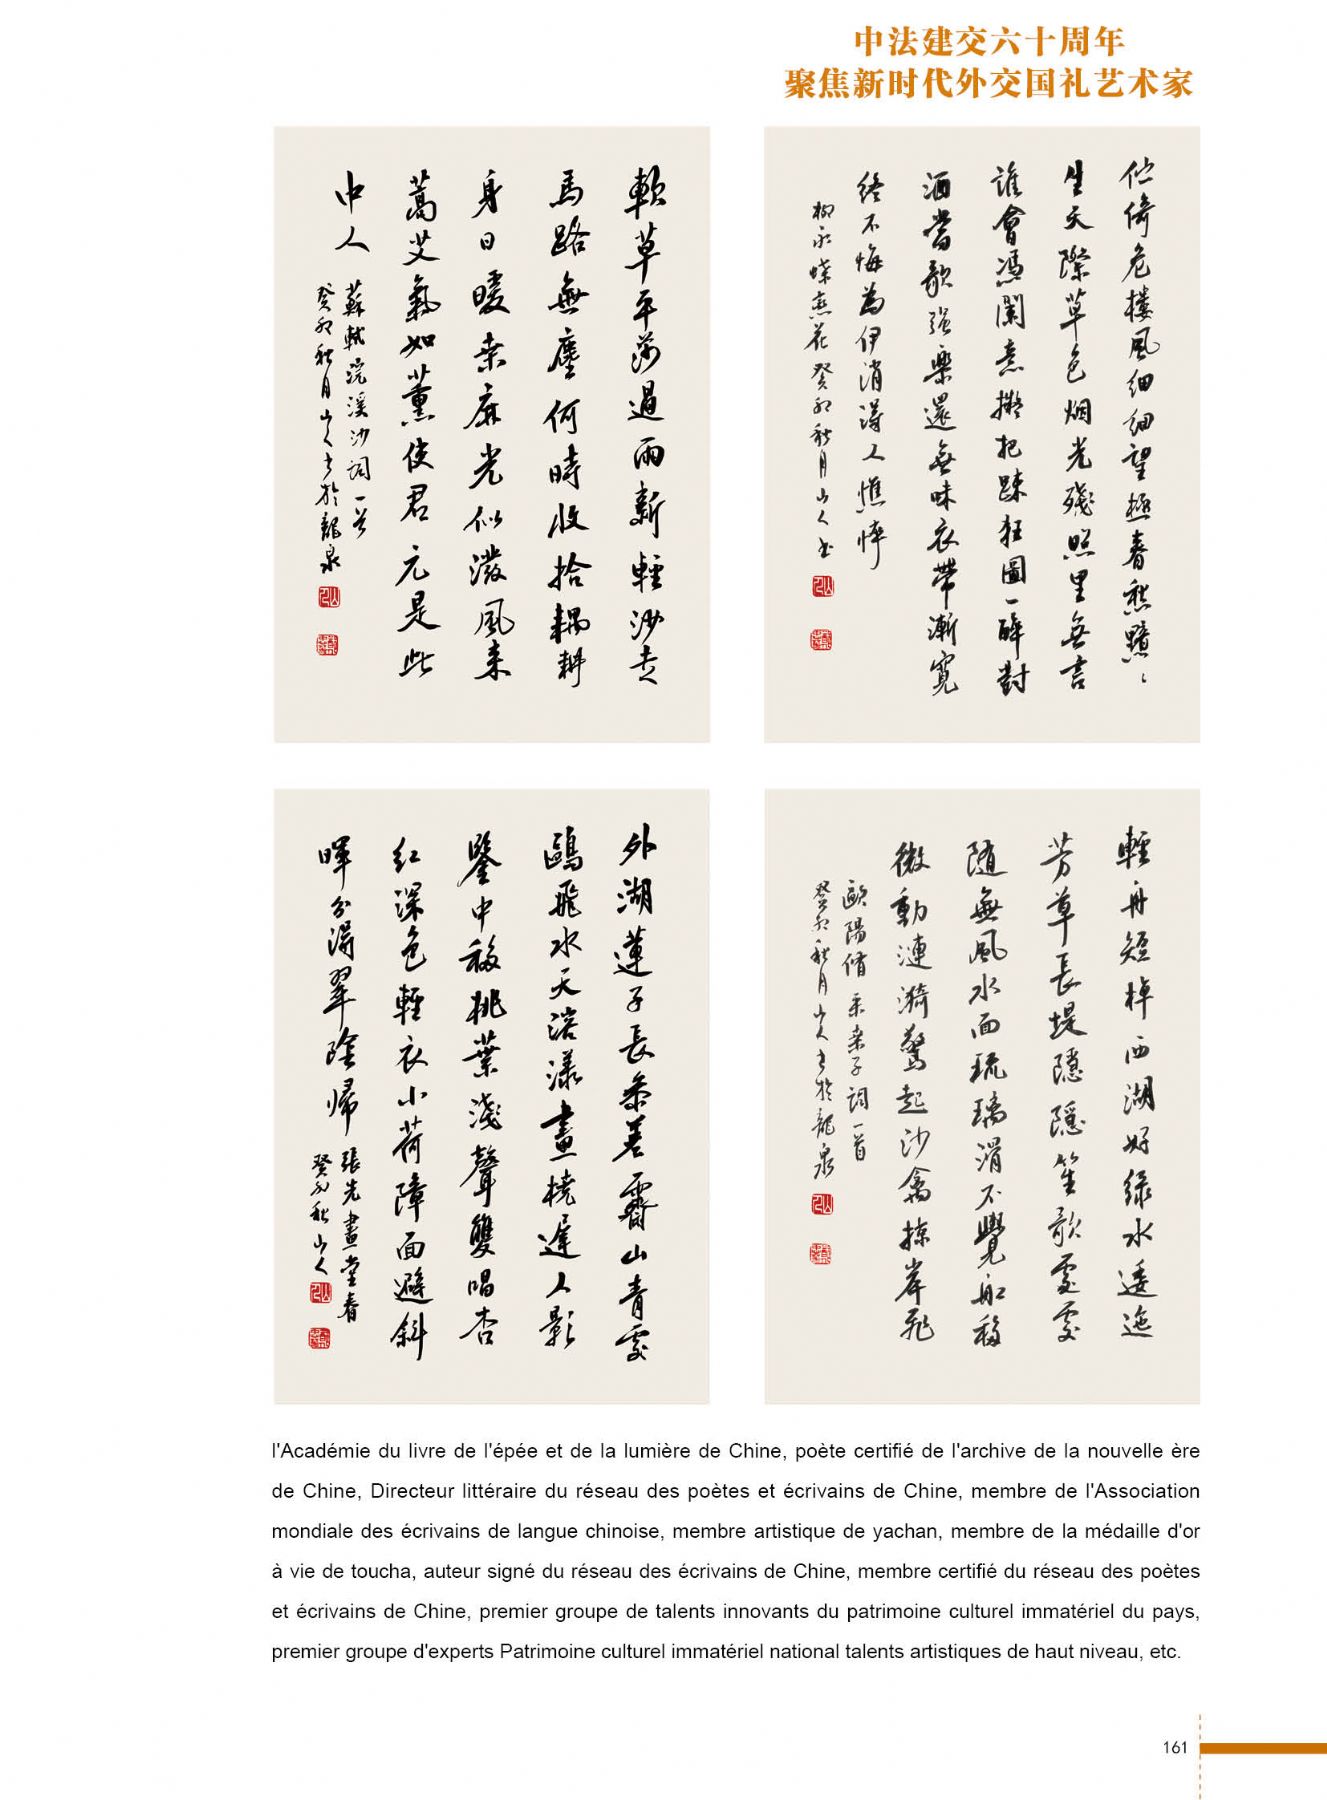 中法建交六十周年
聚焦新时代外交国礼艺术家
軟草平莎過雨新輕沙走
馬路無塵何時收拾耦耕
身日暖桑麻光似潑風来
蒿艾氣如薰使君元是此
中人
蘇軾浣溪沙詞一首
癸卯秋月山人书於龍泉
伫倚危楼風细细望極春愁黯、
生天際草色烟光殘照里無言
誰會馮闌意擬把疎狂圖一醉對
酒當歌强樂還無味衣帶漸寬
終不悔為伊消得人憔悴
柳永蝶恋花癸卯秋月山人书
外湖蓮子長参差霽山青處
鷗飛水天溶漾畫橈遲人影
鑒中移桃葉淺聲雙唱杏
红深色輕衣小荷障面避斜
暉分得翠陰歸
張先畫堂春
癸卯秋山人
輕舟短棹西湖好绿水逶迤
芳草長堤隱隱笙歌處處
随無風水面琉璃滑不覺船移
微動漣漪驚起沙禽掠岸飛
歐陽脩采桑子詞一首
癸卯秋月山人书於龍泉
l'Académie du livre de l'épée et de la lumière de Chine, poète certifié de l'archive de la nouvelle ère
de Chine, Directeur littéraire du réseau des poètes et écrivains de Chine, membre de l'Association
mondiale des écrivains de langue chinoise, membre artistique de yachan, membre de la médaille d'or
à vie de toucha, auteur signé du réseau des écrivains de Chine, membre certifié du réseau des poètes
et écrivains de Chine, premier groupe de talents innovants du patrimoine culturel immatériel du pays,
premier groupe d'experts Patrimoine culturel immatériel national talents artistiques de haut niveau, etc.
161